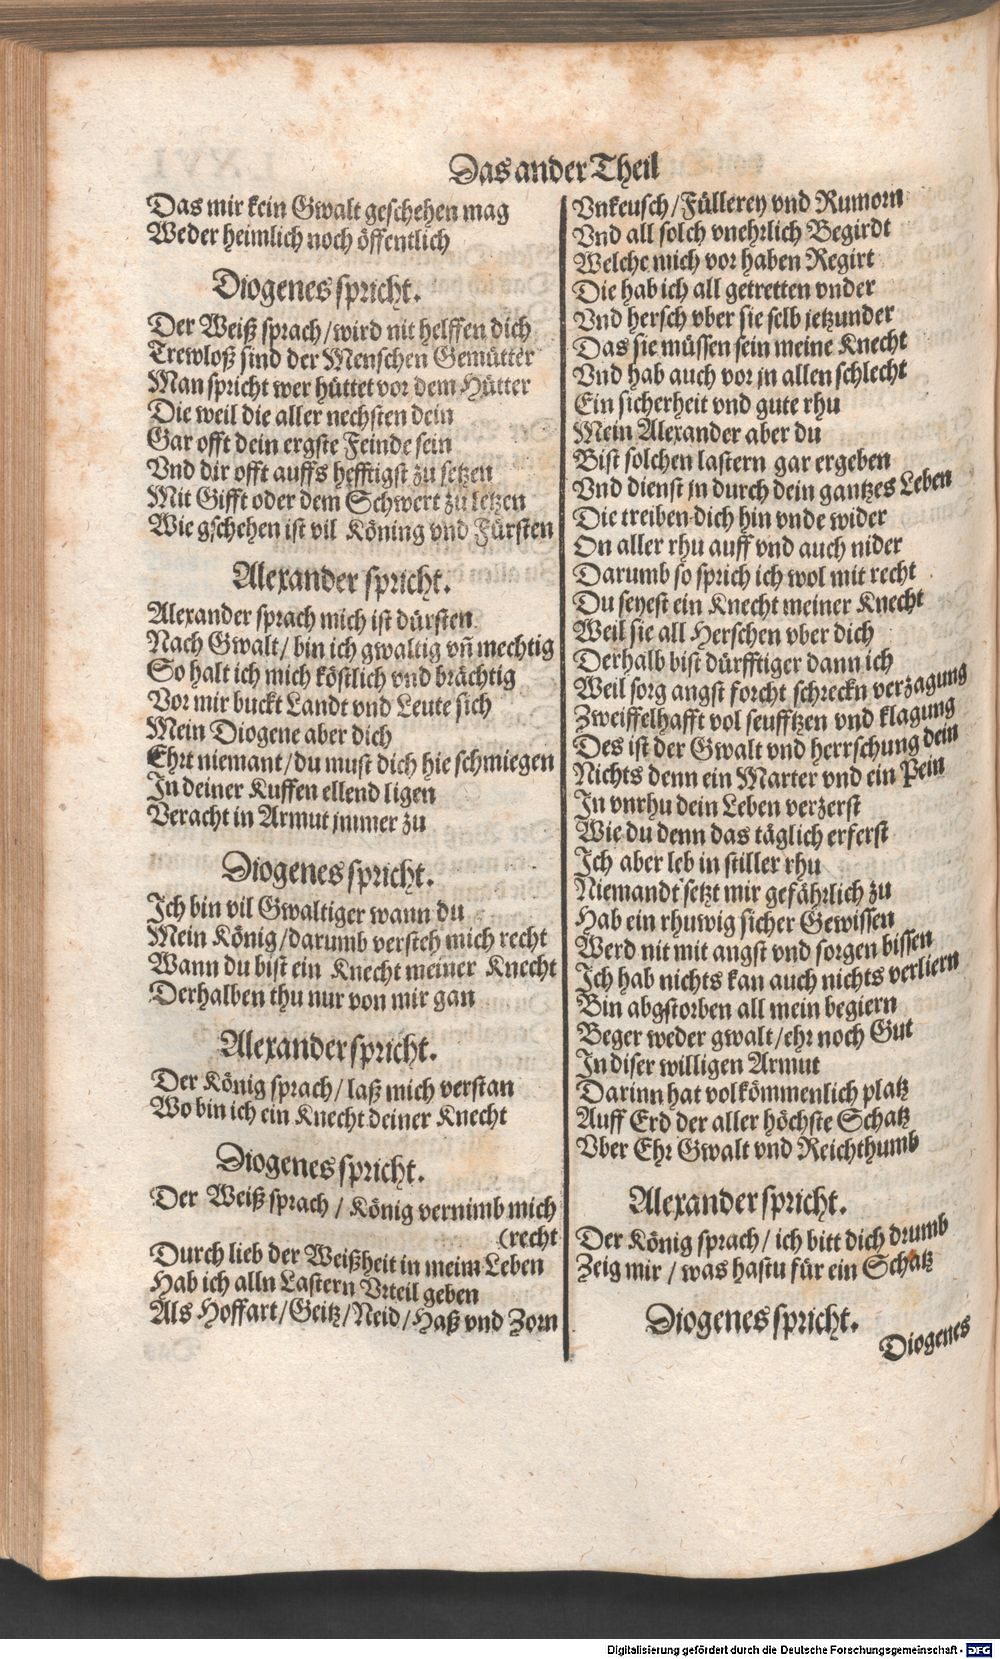 Das ander Theil
Das mir kein Gwalt geschehen mag
Weder heimlich noch öffentlich
Diogenes spricht.
Der Weiß sprach/wird nit helffen dich
Trewloß sind der Menschen Gemütter
Man spricht wer hüttet vor dem Hütter
Die weil die aller nechsten dein
Gar offt dein ergste Feinde sein
Vnd dir offt auffs hefftigst zu setzen
Mit Gifft oder dem Schwert zu letzen
Wie gschehen ist vil Köning vnd Fürsten
Alexander spricht.
Alexander sprach mich ist dürsten
Nach Gwalt/ bin ich gwaltig vñ mechtig
So halt ich mich köstlich vnd brächtig
Vor mir buckt Landt vnd Leute sich
Mein Diogene aber dich
Ehrt niemant/du must dich hie schmiegen
In deiner Kuffen ellend ligen
Veracht in Armut jmmer zu
Diogenes spricht.
Ich bin vil Gwaltiger wann du
Mein König/darumb versteh mich recht
Wann du bist ein Knecht meiner Knecht
Derhalben thu nur von mir gan
Alexander spricht.
Der König sprach/ laß mich verstan
Wo bin ich ein Knecht deiner Knecht
Diogenes spricht.
Der Weiß sprach / König vernimb mich
(recht
Durch lieb der Weißheit in meim Leben
Hab ich alln Lastern Vrteil geben
Als Hoffart/Geitz/Neid/Haß vnd Zorn
Vnkeusch/Füllerey vnd Rumorn
Vnd all solch vnehrlich Begirdt
Welche mich vor haben Regirt
Die hab ich all getretten vnder
Vnd hersch vber sie selb jetzunder
Das sie müssen sein meine Knecht
Vnd hab auch vor jn allen schlecht
Ein sicherheit vnd gute rhu
Mein Alexander aber du
Bist solchen lastern gar ergeben
Vnd dienst jn durch dein gantzes Leben
Die treiben dich hin vnde wider
On aller rhu auff vnd auch nider
Darumb so sprich ich wol mit recht
Du seyest ein Knecht meiner Knecht
Weil sie all Herschen vber dich
Derhalb bist dürfftiger dann ich
Weil sorg angst forcht schreckn verzagung
Zweiffelhafft vol seufftzen vnd klagung
Des ist der Gwalt vnd herrschung dein
Nichts denn ein Marter vnd ein Pein
In vnrhu dein Leben verzerst
Wie du denn das täglich erferst
Ich aber leb in stiller rhu
Niemandt setzt mir gefährlich zu
Hab ein rhuwig sicher Gewissen
Werd nit mit angst vnd sorgen bissen
Ich hab nichts kan auch nichts verliern
Bin abgstorben all mein begiern
Beger weder gwalt/ehr noch Gut
In diser willigen Armut
Darinn hat volkömmenlich platz
Auff Erd der aller höchste Schatz
Vber Ehr Gwalt vnd Reichthumb
Alexander spricht.
Der König sprach/ ich bitt dich drumb
Zeig mir / was hastu für ein Schatz
Diogenes spricht.
Diogenes
Digitalisierung gefördert durch die Deutsche Forschungsgemeinschaft - DFG